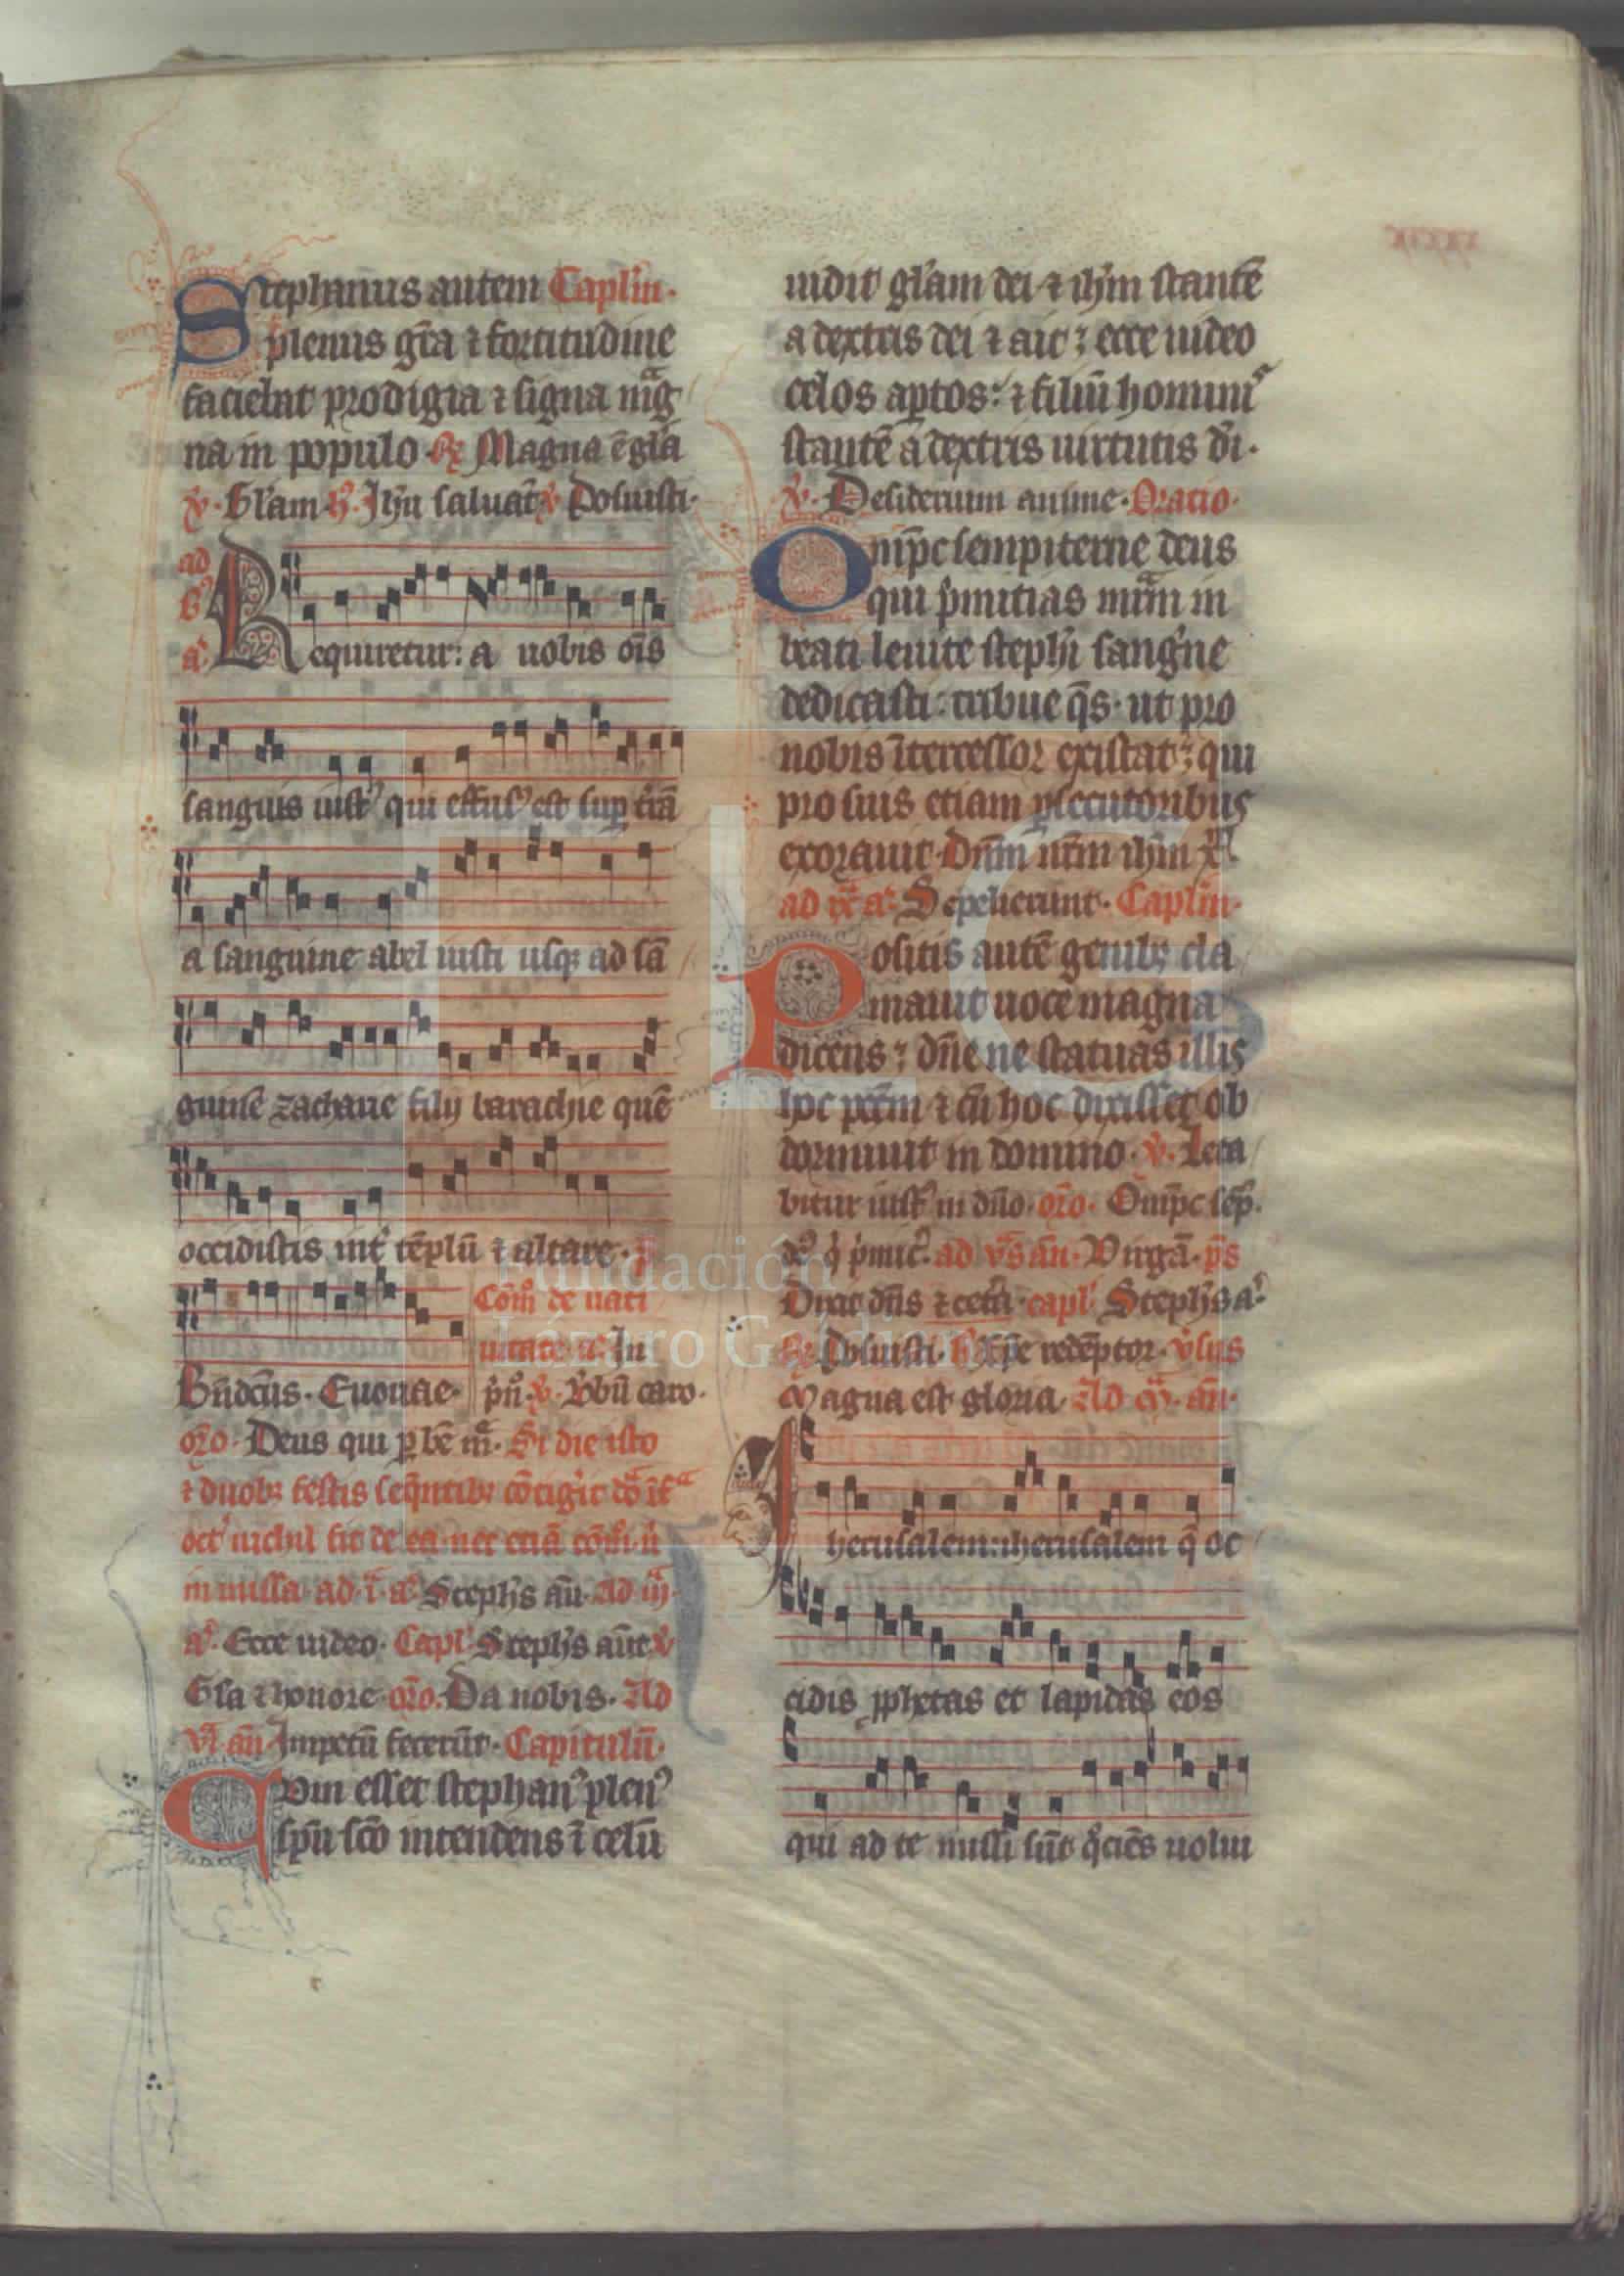 Stephanus autem Caplm̄.
plenus grā ⁊ fortitudine
faciebat prodigia ⁊ signa mag
na in populo. ℟ Magna ē glā
℣. Glām. h̄. Jhū saluat̄. ℣ Posuisti.
ad
Requiretur: a uobis oīs
sanguis iustꝰ qui effusꝰ est suꝑ trā
a sanguine abel iusti usqꝫ ad sā
guinē zacharie filij barachie quē
occidistis int̄ tēplū ⁊ altare.
Bn̄dcūs. Euouae.
Cōm̄ de nati
uitate. a. In
pn̄. ℣. Vbū caro.
orō. Deus qui ꝑ bē m̄. Si die isto
⁊ duobꝫ festis seq̄ntibꝫ cōtigit̄ dō īfᵃ
octꝰ nichil fit de ea. nec etiā cōm̄. n̄
in missa. ad .i. a. Stephs aū. ad iij.
a. Ecce uideo. Capl Stephs aūt ℣
Glā ⁊ honore. orō. Da nobis. Ad
vi. an̄ Impetū fecerūt. Capitulū.
Cvm esset stephanꝰ plenꝰ
spū scō intendens ī celū
xxxix
uidit glām dei ⁊ ihm stantē
a dextris dei ⁊ ait: ecce uideo
celos aꝑtos: ⁊ filiū hominis
stantē a dextris uirtutis dei.
℣. Desiderium anime. Oratio.
Omp̄c sempiterne deus
qui pmitias mrm̄ in
beati leuite stephi sangne
dedicasti: tribue qs̄. ut pro
nobis ītercessor existat: qui
pro suis etiam ꝑsecutoribus
exorauit. Dnm̄ nrm̄ ihm̄ xp̄
ad ix. a. Sepelierunt. Caplm̄.
Positis autē genibꝫ cla
mauit uoce magna
dicens: dn̄e ne statuas illis
hoc pctm̄ ⁊ cū hoc dixisset ob
dormiuit in domino. ℣. Leta
bitur iustꝰ in dn̄o. orō. Omp̄c sēp.
dꝰ q pmit. ad vs̄ an̄. Virgā. ps̄
Dixit dn̄s ⁊ cetā. capl Stephs a.
℟ Posuisti. h̄ Xp̄e redēptor. v̄sus
Magna est gloria. Ad m̄. an̄.
Iherusalem: iherusalem q̄ oc
cidis ꝓphetas et lapidas eos
qui ad te missi sūt q̄ciēs uolui
FLG
Fundación
Lázaro Galdiano